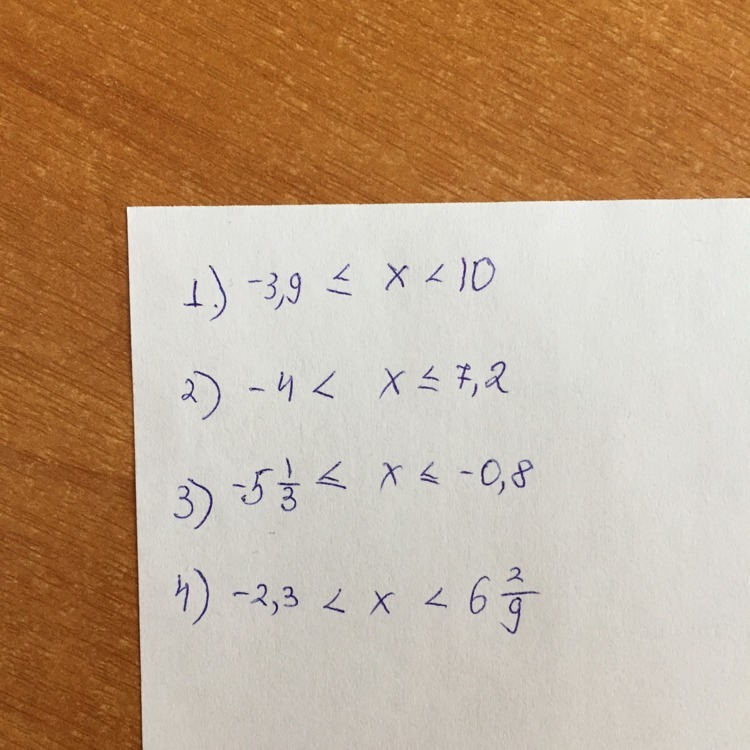 1.) -3,9 ≤ x < 10
2) -4 < x ≤ 7,2
3) -5 1/3 ≤ x ≤ -0,8
4) -2,3 < x < 6 2/9